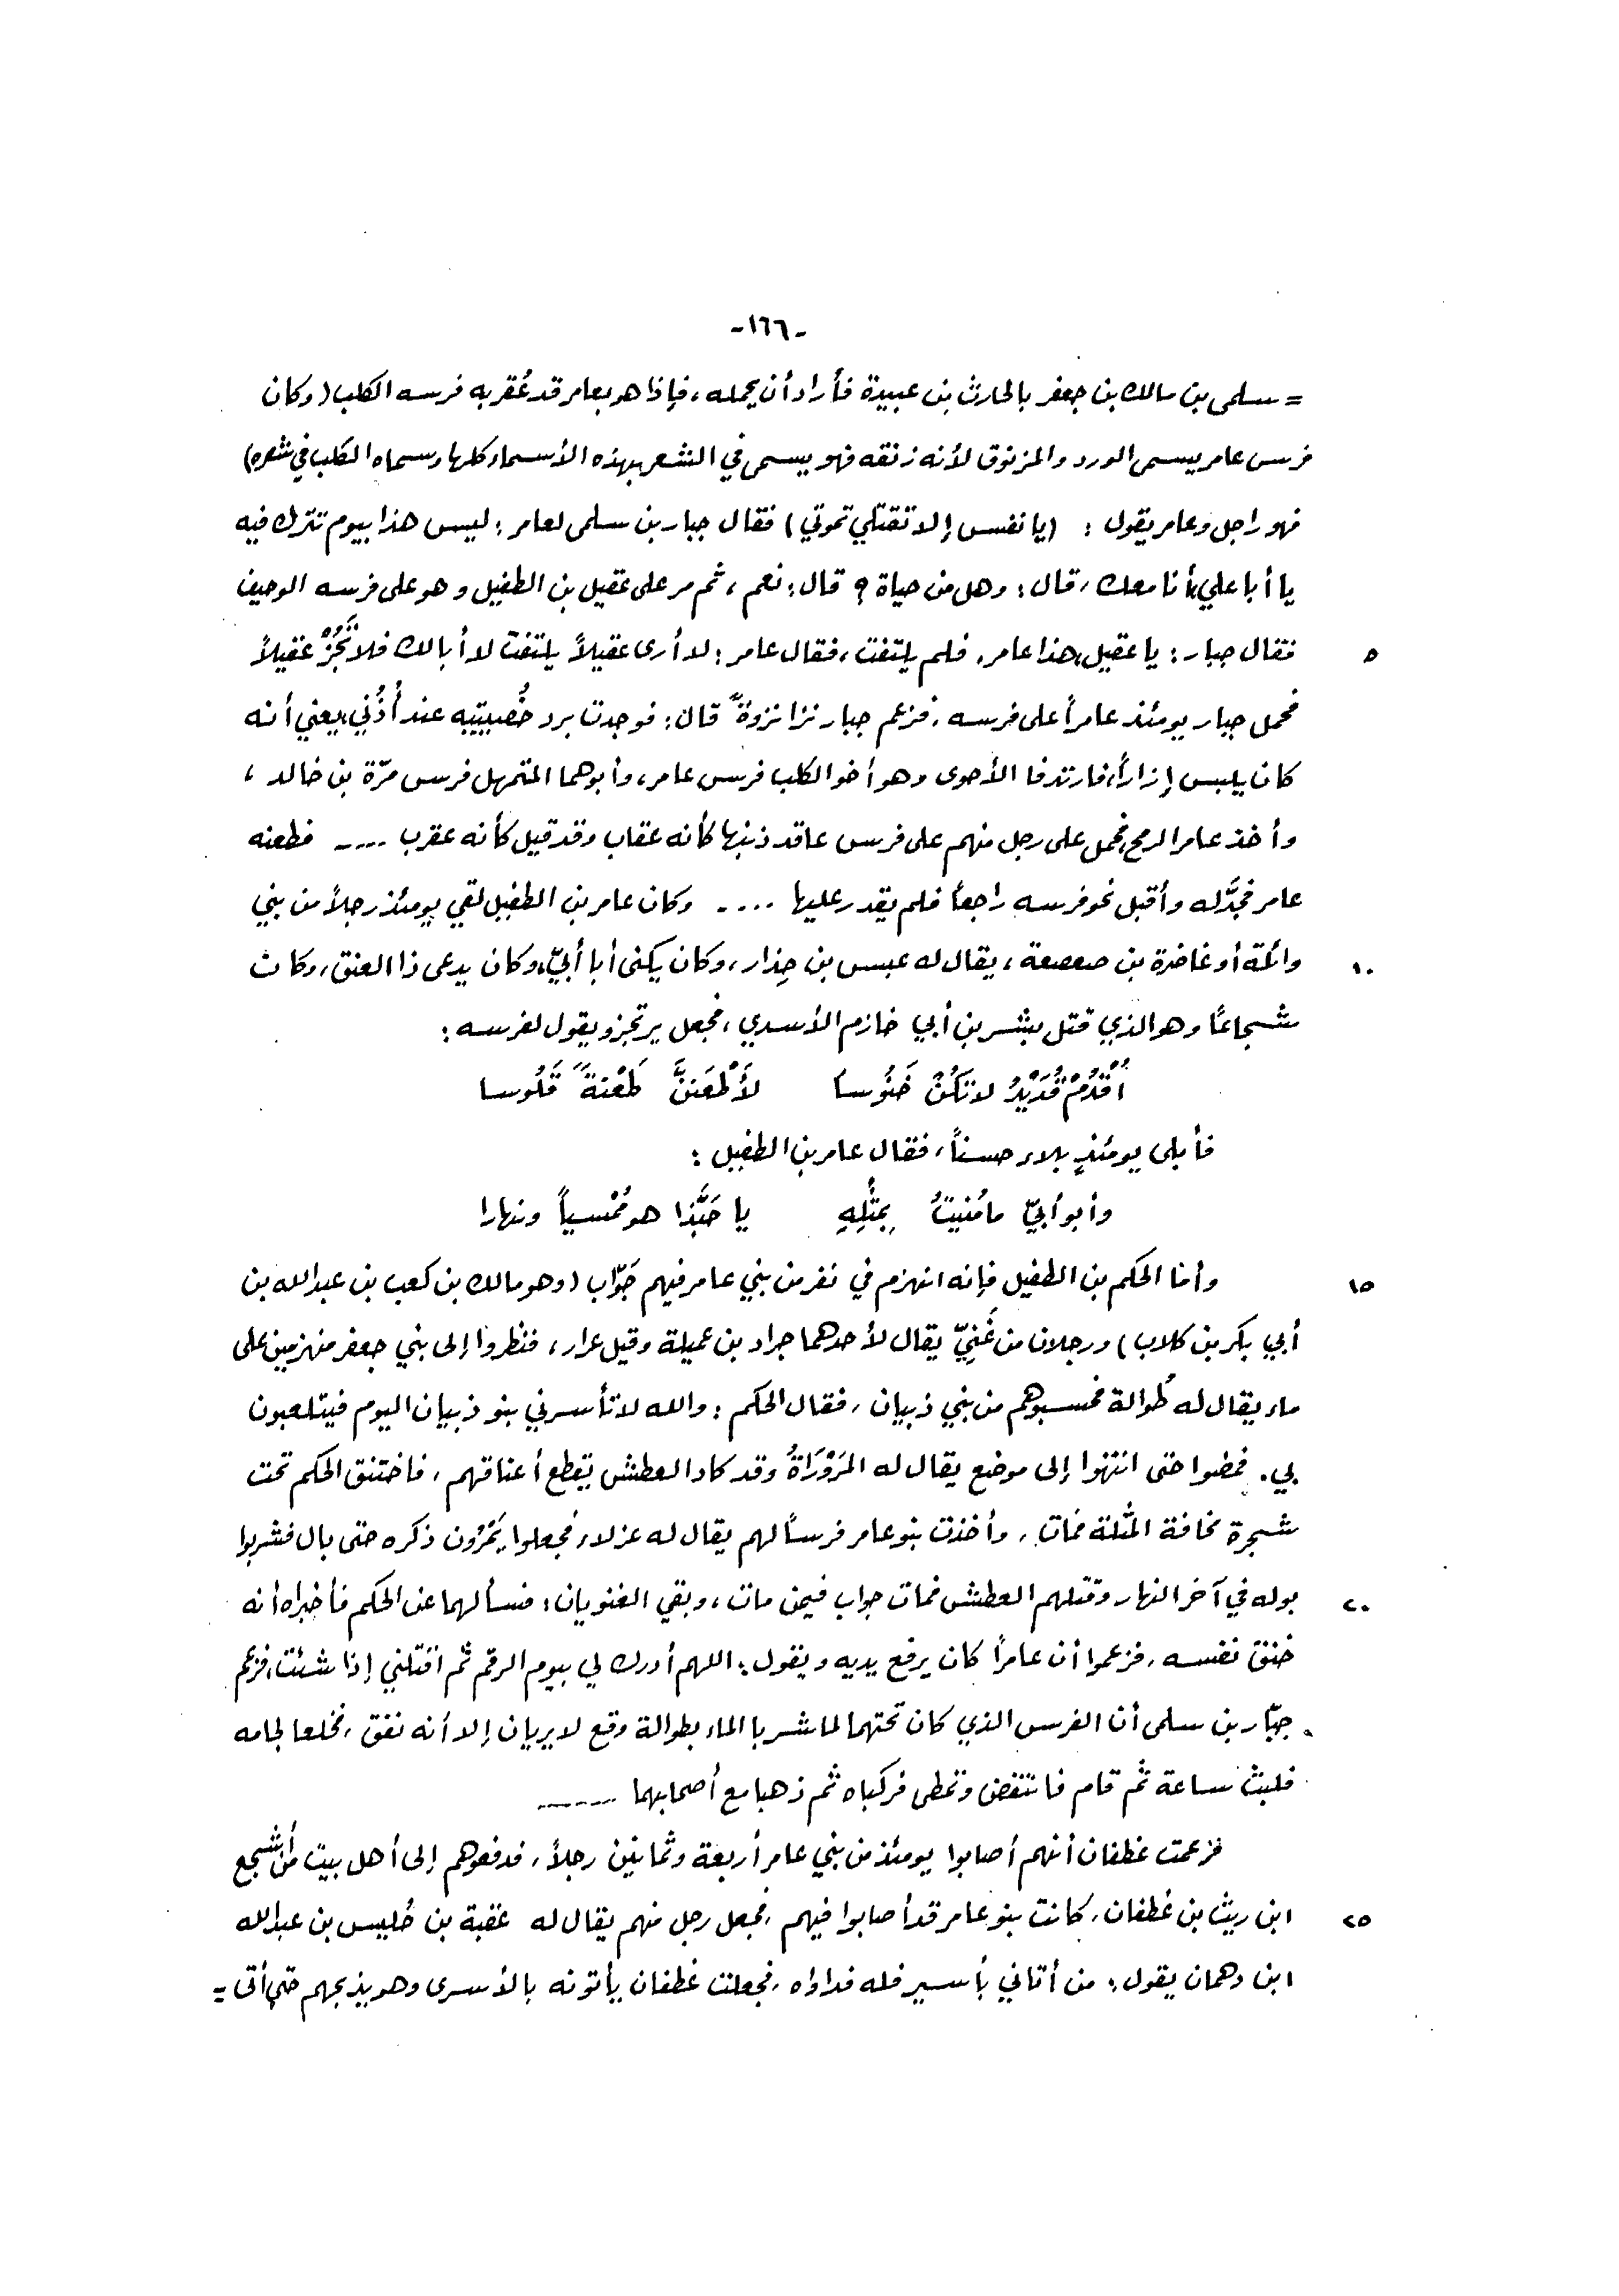 -١٦٦-
= سلمى بن مالك بن جعفر بالحارث بن عبيدة فأراد أن يحمله، فإذا هو بعامر قد عُقر به فرسه الكلب (وكان
فرس عامر يسمى الورد والمزنوق لأنه زنقه فهو يسمى في الشعر بهذه الأسماء كلها وسماه الكلب في شعره)
فهو راجل وعامر يقول : (يا نفس إلا تقتلي تموتي) فقال جبار بن سلمى لعامر : ليس هذا بيوم تترك فيه
يا أبا علي، أنا معك، قال : وهل من حياة ؟ قال : نعم، ثم مر على عقيل بن الطفيل وهو على فرسه الوحيف
٥ فقال جبار : يا عقيل، هذا عامر، فلم يلتفت، فقال عامر : لا أرى عقيلاً يلتفت لا أبا لك فلا تَجُزْ عقيلاً
فحمل جبار يومئذ عامراً على فرسه، فزعم جبار نزا نزوةً قال : فوجدت برد خُصييتيه عند أُذُني، يعني أنه
كان يلبس إزاراً، فارتدفا الأحوى وهو أخو الكلب فرس عامر، وأبوهما المتمهل فرس مرّة بن خالد،
وأخذ عامر الرمح فحمل على رجل منهم على فرس عاقد ذنبها كأنه عقاب وقد قيل كأنه عقرب .... فطعنه
عامر فجدَّله وأقبل نحو فرسه راجعاً فلم يقدر عليها .... وكان عامر بن الطفيل لقي يومئذ رجلاً من بني
١٠ وائلة أو غاضرة بن صعصعة، يقال له عبس بن حِذار، وكان يكنى أبا أبيّ، وكان يدعى ذا العنق، وكان
شجاعاً وهو الذي قتل بشر بن أبي خازم الأسدي، فجعل يرتجز ويقول لفرسه :
أُقْدُمْ قُدَيْدُ لا تَكُنْ خَنُوسا لأَطْعَنَنَّ طَعْنةً قَلُوسا
فأبلى يومئذٍ بلاء حسناً، فقال عامر بن الطفيل :
وأبو أُبيّ ما مُنيتُ بِمثْلِهِ يا حَبَّذا هو مُمْسياً ونهارا
١٥ وأما الحكم بن الطفيل فإنه انهزم في نفر من بني عامر فيهم جَوّاب (وهو مالك بن كعب بن عبدالله بن
أبي بكر بن كلاب) ورجلان من غَنِيّ يقال لأحدهما جراد بن عميلة وقيل عرار، فنظروا إلى بني جعفر منهزمين على
ماء يقال له طُوالة فحسبوهم من بني ذبيان، فقال الحكم : والله لا تأسرني بنو ذبيان اليوم فيتلعبون
بي. فمضوا حتى انتهوا إلى موضع يقال له المَرَوْرَاةُ وقد كاد العطش يقطع أعناقهم، فاختنق الحكم تحت
شجرة مخافة المُثلة فمات، وأخذت بنو عامر فرساً لهم يقال له عزلاء فجعلوا يَمْرُون ذكره حتى بال فشربوا
٢٠ بوله في آخر النهار وقتلهم العطش فمات جواب فيمن مات، وبقي الغنويان : فسألهما عن الحكم فأخبراه أنه
خنق نفسه، فزعموا أن عامراً كان يرفع يديه ويقول : اللهم أدرك لي بيوم الرقم ثم اقتلني إذا شئت، فزعم
جبّار بن سلمى أن الفرس الذي كان تحتهما لما شربا الماء بطوالة وقع لا يريان إلا أنه نفق، فخلعا لجامه
فلبث ساعة ثم قام فانتفض وتمطى فركباه ثم ذهبا مع أصحابهما ......
فزعمت غطفان أنهم أصابوا يومئذ من بني عامر أربعة وثمانين رجلاً، فدفعوهم إلى أهل بيت من أشجع
٢٥ ابن ريث بن غطفان، كانت بنو عامر قد أصابوا فيهم، فجعل رجل منهم يقال له عقبة بن حُليس بن عبدالله
ابن دهمان يقول : من أتاني بأسير فله فداؤه، فجعلت غطفان يأتونه بالأسرى وهو يذبحهم حتى أتى =